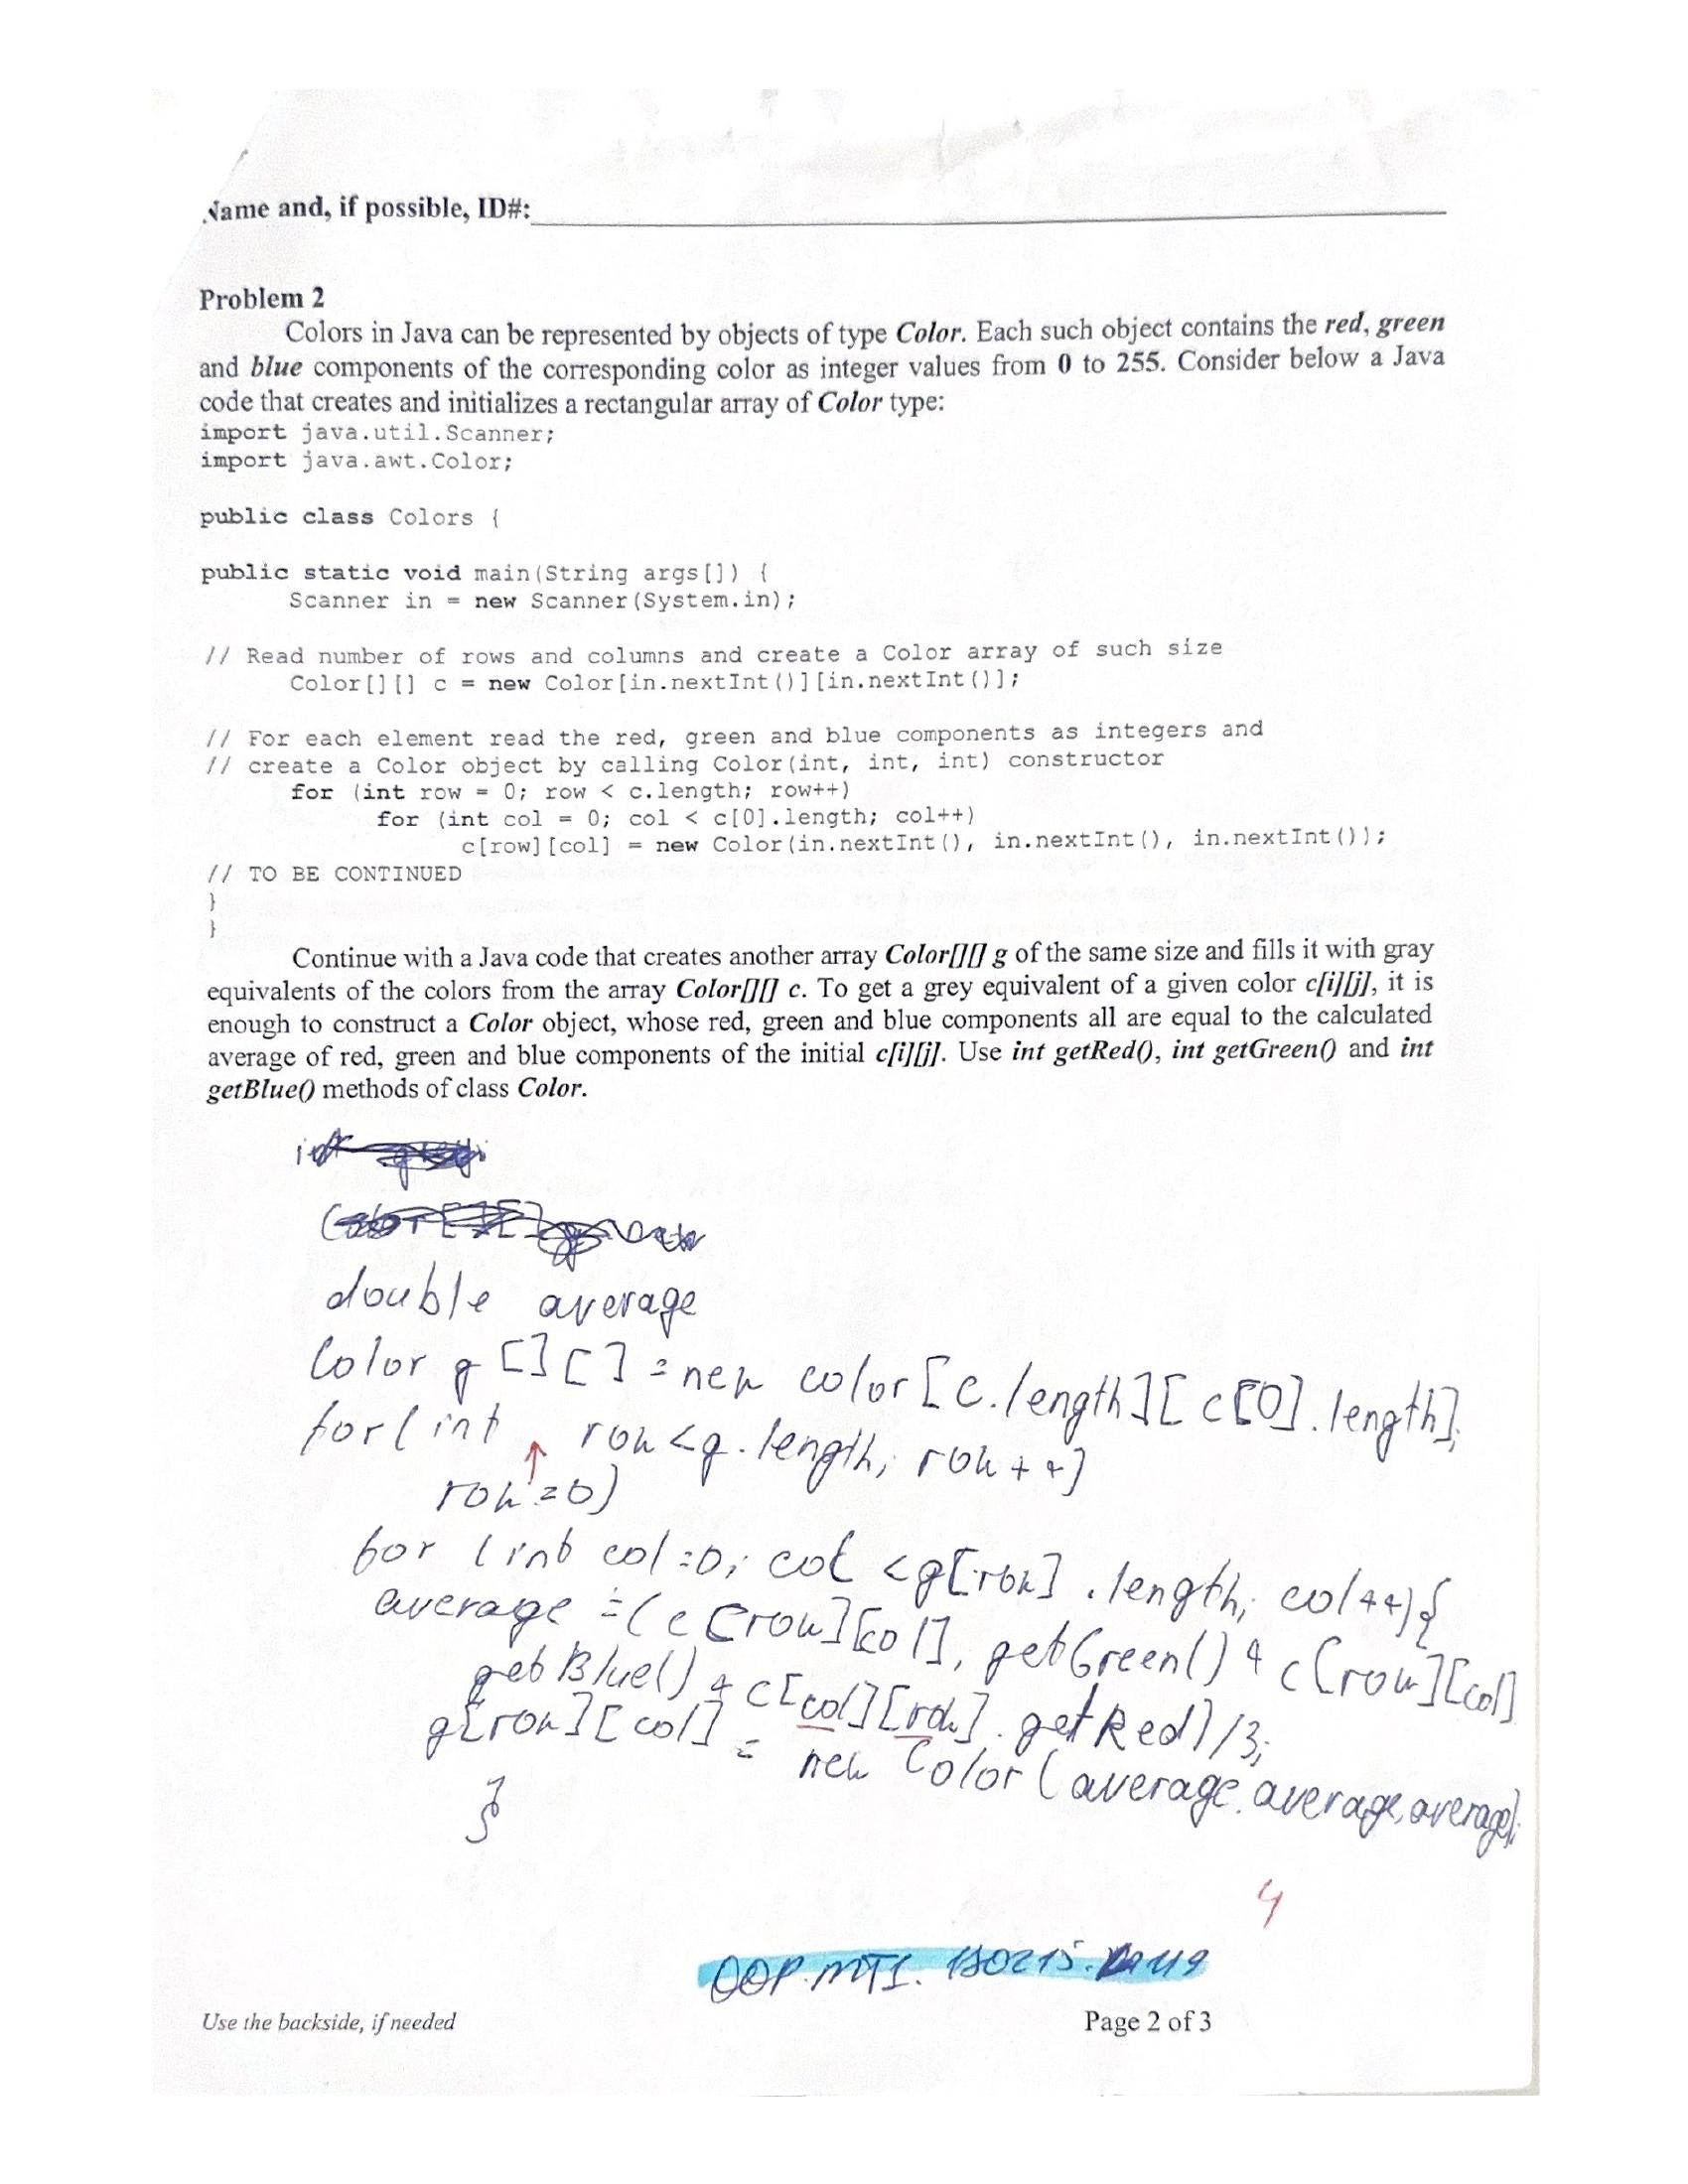 Name and, if possible, ID#:
Problem 2
Colors in Java can be represented by objects of type Color. Each such object contains the red, green
and blue components of the corresponding color as integer values from 0 to 255. Consider below a Java
code that creates and initializes a rectangular array of Color type:
import java.util.Scanner;
import java.awt.Color;
public class Colors {
public static void main(String args[]) {
Scanner in = new Scanner(System.in);
// Read number of rows and columns and create a Color array of such size
Color[][] c = new Color[in.nextInt()][in.nextInt()];
// For each element read the red, green and blue components as integers and
// create a Color object by calling Color(int, int, int) constructor
for (int row = 0; row < c.length; row++)
for (int col = 0; col < c[0].length; col++)
c[row][col] = new Color(in.nextInt(), in.nextInt(), in.nextInt());
// TO BE CONTINUED
}
}
Continue with a Java code that creates another array Color[][] g of the same size and fills it with gray
equivalents of the colors from the array Color[][] c. To get a grey equivalent of a given color c[i][j], it is
enough to construct a Color object, whose red, green and blue components all are equal to the calculated
average of red, green and blue components of the initial c[i][j]. Use int getRed(), int getGreen() and int
getBlue() methods of class Color.
double average
Color g [][] = new color[c.length][c[0].length];
for(int row<g.length; row++)
row=0)
for (int col=0; col <g[row].length; col++){
average =(c[row][col].getGreen() + c[row][col]
getBlue() + c[col][row].getRed)/3;
g[row][col] = new Color(average,average,average);
}
4
OOP.MT1.180215.
Use the backside, if needed
Page 2 of 3